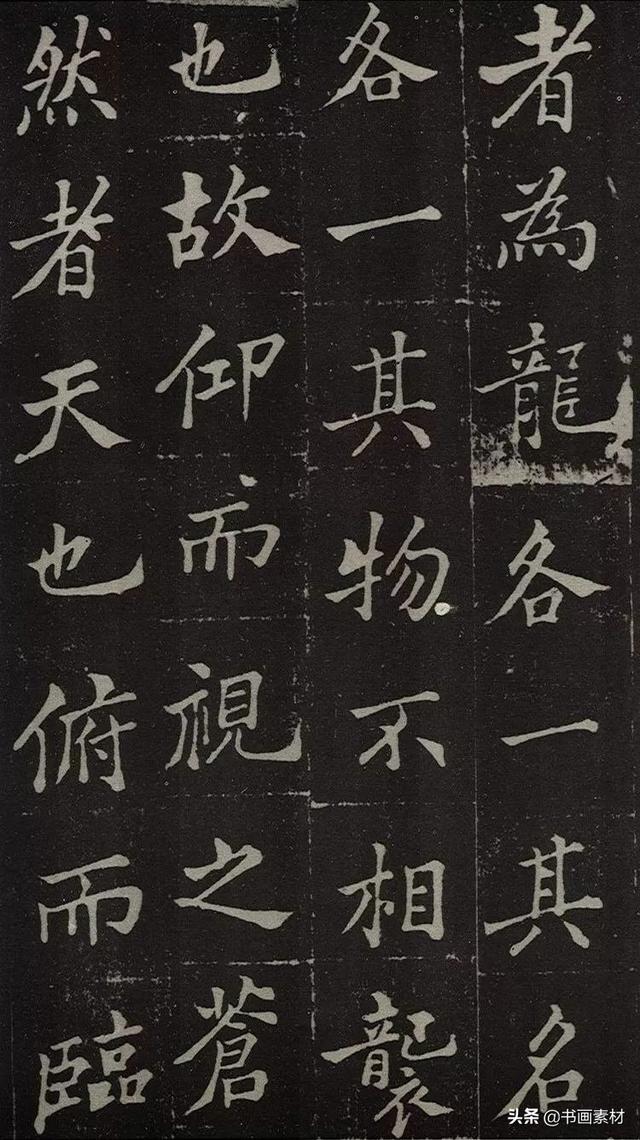 者為龍各一其名
各一其物不相襲
也故仰而視之蒼
然者天也俯而臨
头条 @书画素材